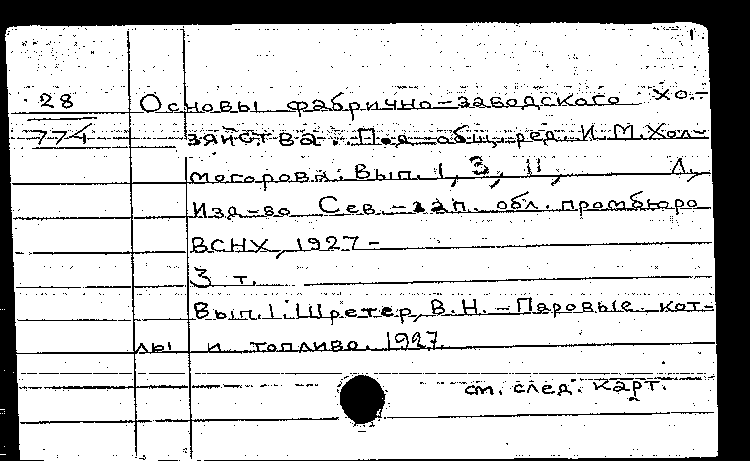 28 Основы фабрично-заводского хо-
774 зяйства. Под общ. ред. И.М.Хол-
могорова. Вып. 1, 3, 11, Л,
Изд-во Сев.-зап. обл. промбюро
ВСНХ, 1927-
3 т.
Вып.1. Шретер, В.Н. - Паровые кот-
лы и топливо. 1927.
см. след. карт.